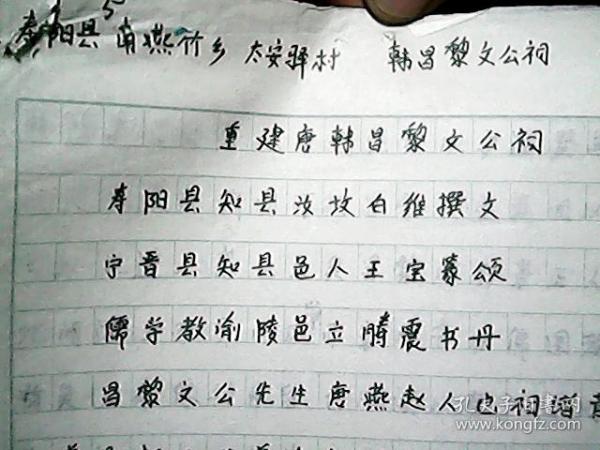 寿阳县南燕竹乡 太安驿村 韩昌黎文公祠
重建唐韩昌黎文公祠
寿阳县知县汝坟白维撰文
宁晋县知县邑人王宝篆颂
儒学教渝陵邑立腾震书丹
昌黎文公先生唐燕赵人也祠谐
孔夫子旧书网
www.kongfz.com